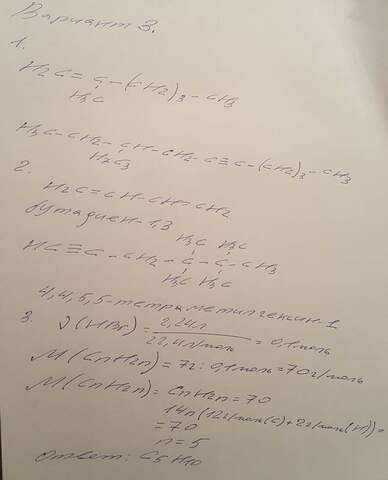 Вариант 3.
1.
H2C=C-(CH2)3-CH3
H3C
H3C-CH2-CH-CH2-C≡C-(CH2)3-CH3
H7C3
2.
H2C=CH-CH=CH2
бутадиен-1,3
H3C H3C
HC≡C-CH2-C-C-CH3
H3C H3C
4,4,5,5-тетраметилгексин-1
3. ν(HBr)=2,24л/22,4л/моль=0,1моль
M(CnH2n)=7г:0,1моль=70г/моль
M(CnH2n)=CnH2n=70
14n(12г/моль(C)+2г/моль(H))=
=70
n=5
Ответ: C5H10